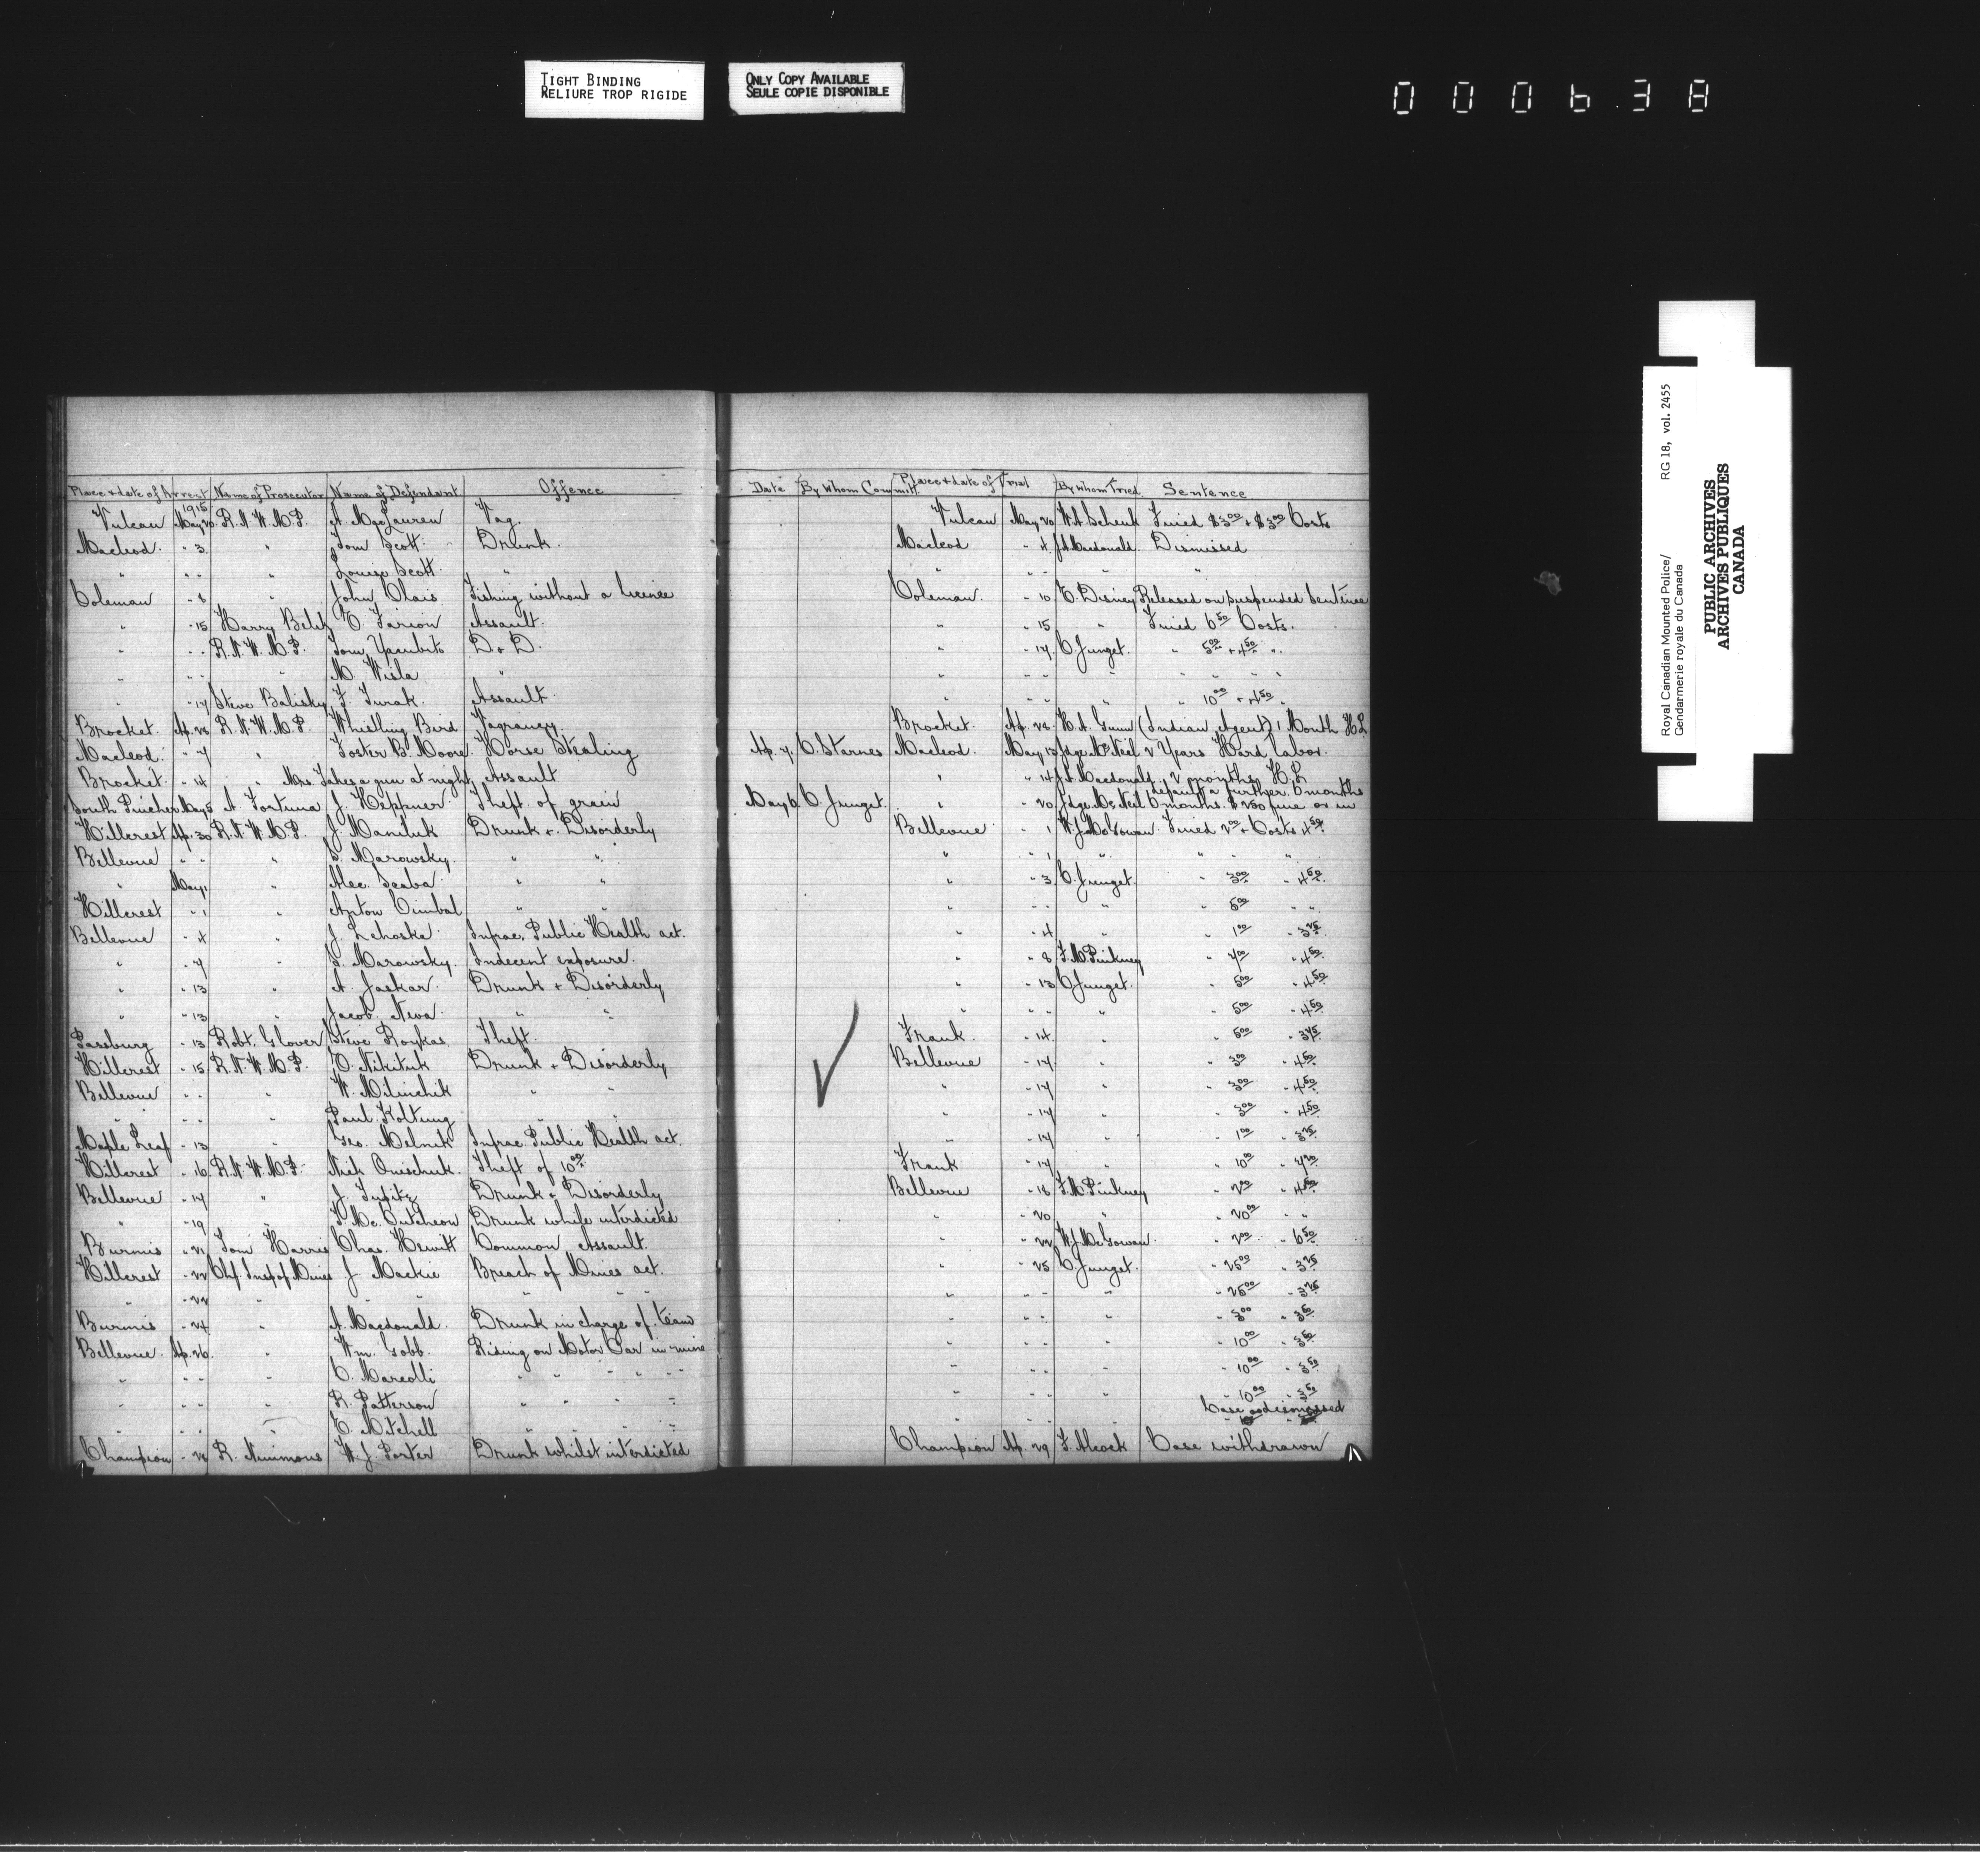 TIGHT BINDING
RELIURE TROP RIGIDE
ONLY COPY AVAILABLE
SEULE COPIE DISPONIBLE
000638
Royal Canadian Mounted Police/ RG 18, vol. 2455
Gendarmerie royale du Canada
PUBLIC ARCHIVES
ARCHIVES PUBLIQUES
CANADA
Place & date of Arrest Name of Prosecutor Name of Defendant Offence Date By Whom Committ Place & date of Trial By whom Tried Sentence
1915
Vulcan May 20 R.N.W.M.P. A. MacLauren Vag. Vulcan May 20 W.A. Schenk Fined $3.00 + $3.00 Costs
Macleod " 3 " Tom Scott Drunk. Macleod " 4 J.A. Macdonald Dismissed
" " " " Louise Scott " " " " " "
Coleman " 8 " John Olais Fishing without a licence Coleman. " 10 E. Disney Released on suspended sentence
" " 15 Harry Belik E. Farion Assault. " " 15 " Fined 6.50 Costs.
" " " R.N.W.M.P. Tom D & D. " " 17 C. Junget. " 5.00 + 4.50 "
" " " " M. Wisla " " " " " " " "
" " 17 Steve Balisky F. Turak. Assault. " " " " " 10.00 + 4.50 "
Brocket. Ap. 28 R.N.W.M.P. Whistling Bird Vagrancy. Brocket. Ap. 28 H.A. Gunn (Indian Agent) 1 Month H.L
Macleod. " 7 " Foster B. Moore Horse Stealing Ap. 7. C. Starnes Macleod. May 13 Jdge McNeil 2 Years Hard labor.
Brocket. " 14 " Mrs. Takes a gun at night Assault " " 14 J.A. Macdonald 2 months H.L
default a further 6 months
South Pincher May 5 A. Fortuna J. Heppner Theft of grain May 6 C. Junget. " " 20 Jdge McNeil 6 months. $250 fine or in
Hillcrest Ap. 30 R.N.W.M.P. J. Maniluk Drunk & Disorderly Bellevue " 1 W.J. McGowan Fined 2.00 + Costs 4.50
Bellevue " " " S. Marowsky. " " " " 1 " " " "
" May 1 " Alec. Scaba " " " " 3 C. Junget. " 3.00 " 4.50
Hillcrest " 1 " Anton Cimbal " " " " " " " 5.00 " "
Bellevue " 4 " J. Lehoska Infrac. Public Health act. " " 4 " " 1.00 " 3.75
" " 7 " S. Marowsky. Indecent exposure. " " 8 F.M. Pinkney " " 4.50
" " 13 " A. Jaskar Drunk & Disorderly " " 13 C. Junget. " 5.00 " 4.50
" " 13 " Jacob Neva " " " " " " " 5.00 " 4.50
Passburg " 13 Robt. Glover Steve Roykas Theft. Frank. " 14 " " 5.00 " 3.75
Hillcrest " 15 R.N.W.M.P. O. Nikituk Drunk & Disorderly Bellevue " 17 " " 3.00 " 4.50
Bellevue " " " W. Milinchik " " " 17 " " 3.00 " 4.50
" " " " Paul Koltung " " " " 17 " " 3.00 " 4.50
Maple Leaf " 13 " Geo. Melnik Infrac. Public Health act. " " 17 " " 1.00 " 3.75
Hillcrest " 16 R.N.W.M.P. Nick Onischuk. Theft of 10.00 Frank " 17 " " 10.00 "
Bellevue " 17 " J. Drunk & Disorderly Bellevue " 18 F.M. Pinkney " 2.00 " 4.50
" " 19 " McCutcheon Drunk while interdicted " " 20 " " 20.00 " "
Burmis " 21 Tom Harris Chas. Hewitt Common Assault. " " 22 W.J. McGowan. " 2.00 " 6.50
Hillcrest " 22 Chf. Insp of Mines J. Mackie Breach of Mines act. " " 25 C. Junget. " 25.00 " 3.75
" " 22 " " " " " " " " " " " 25.00 " 3.75
Burmis " 24 " A. Macdonald. Drunk in charge of team " " " " " 3.00 " 3.50
Bellevue. Ap. 26. " Wm. Gobb. Riding on Motor Car in mine " " " " " 10.00 " 3.50
" " " " C. Marcolli " " " " " " " " " " 10.00 " 3.50
" " " " R. Patterson " " " " " " " " " 10.00 " 3.50
" " " " E. Mitchell " " " " " " " Case dismissed
Champion " 28 R. Nimmons W.J. Porter Drunk whilst interdicted Champion Ap. 29 F. Alcock Case withdrawn